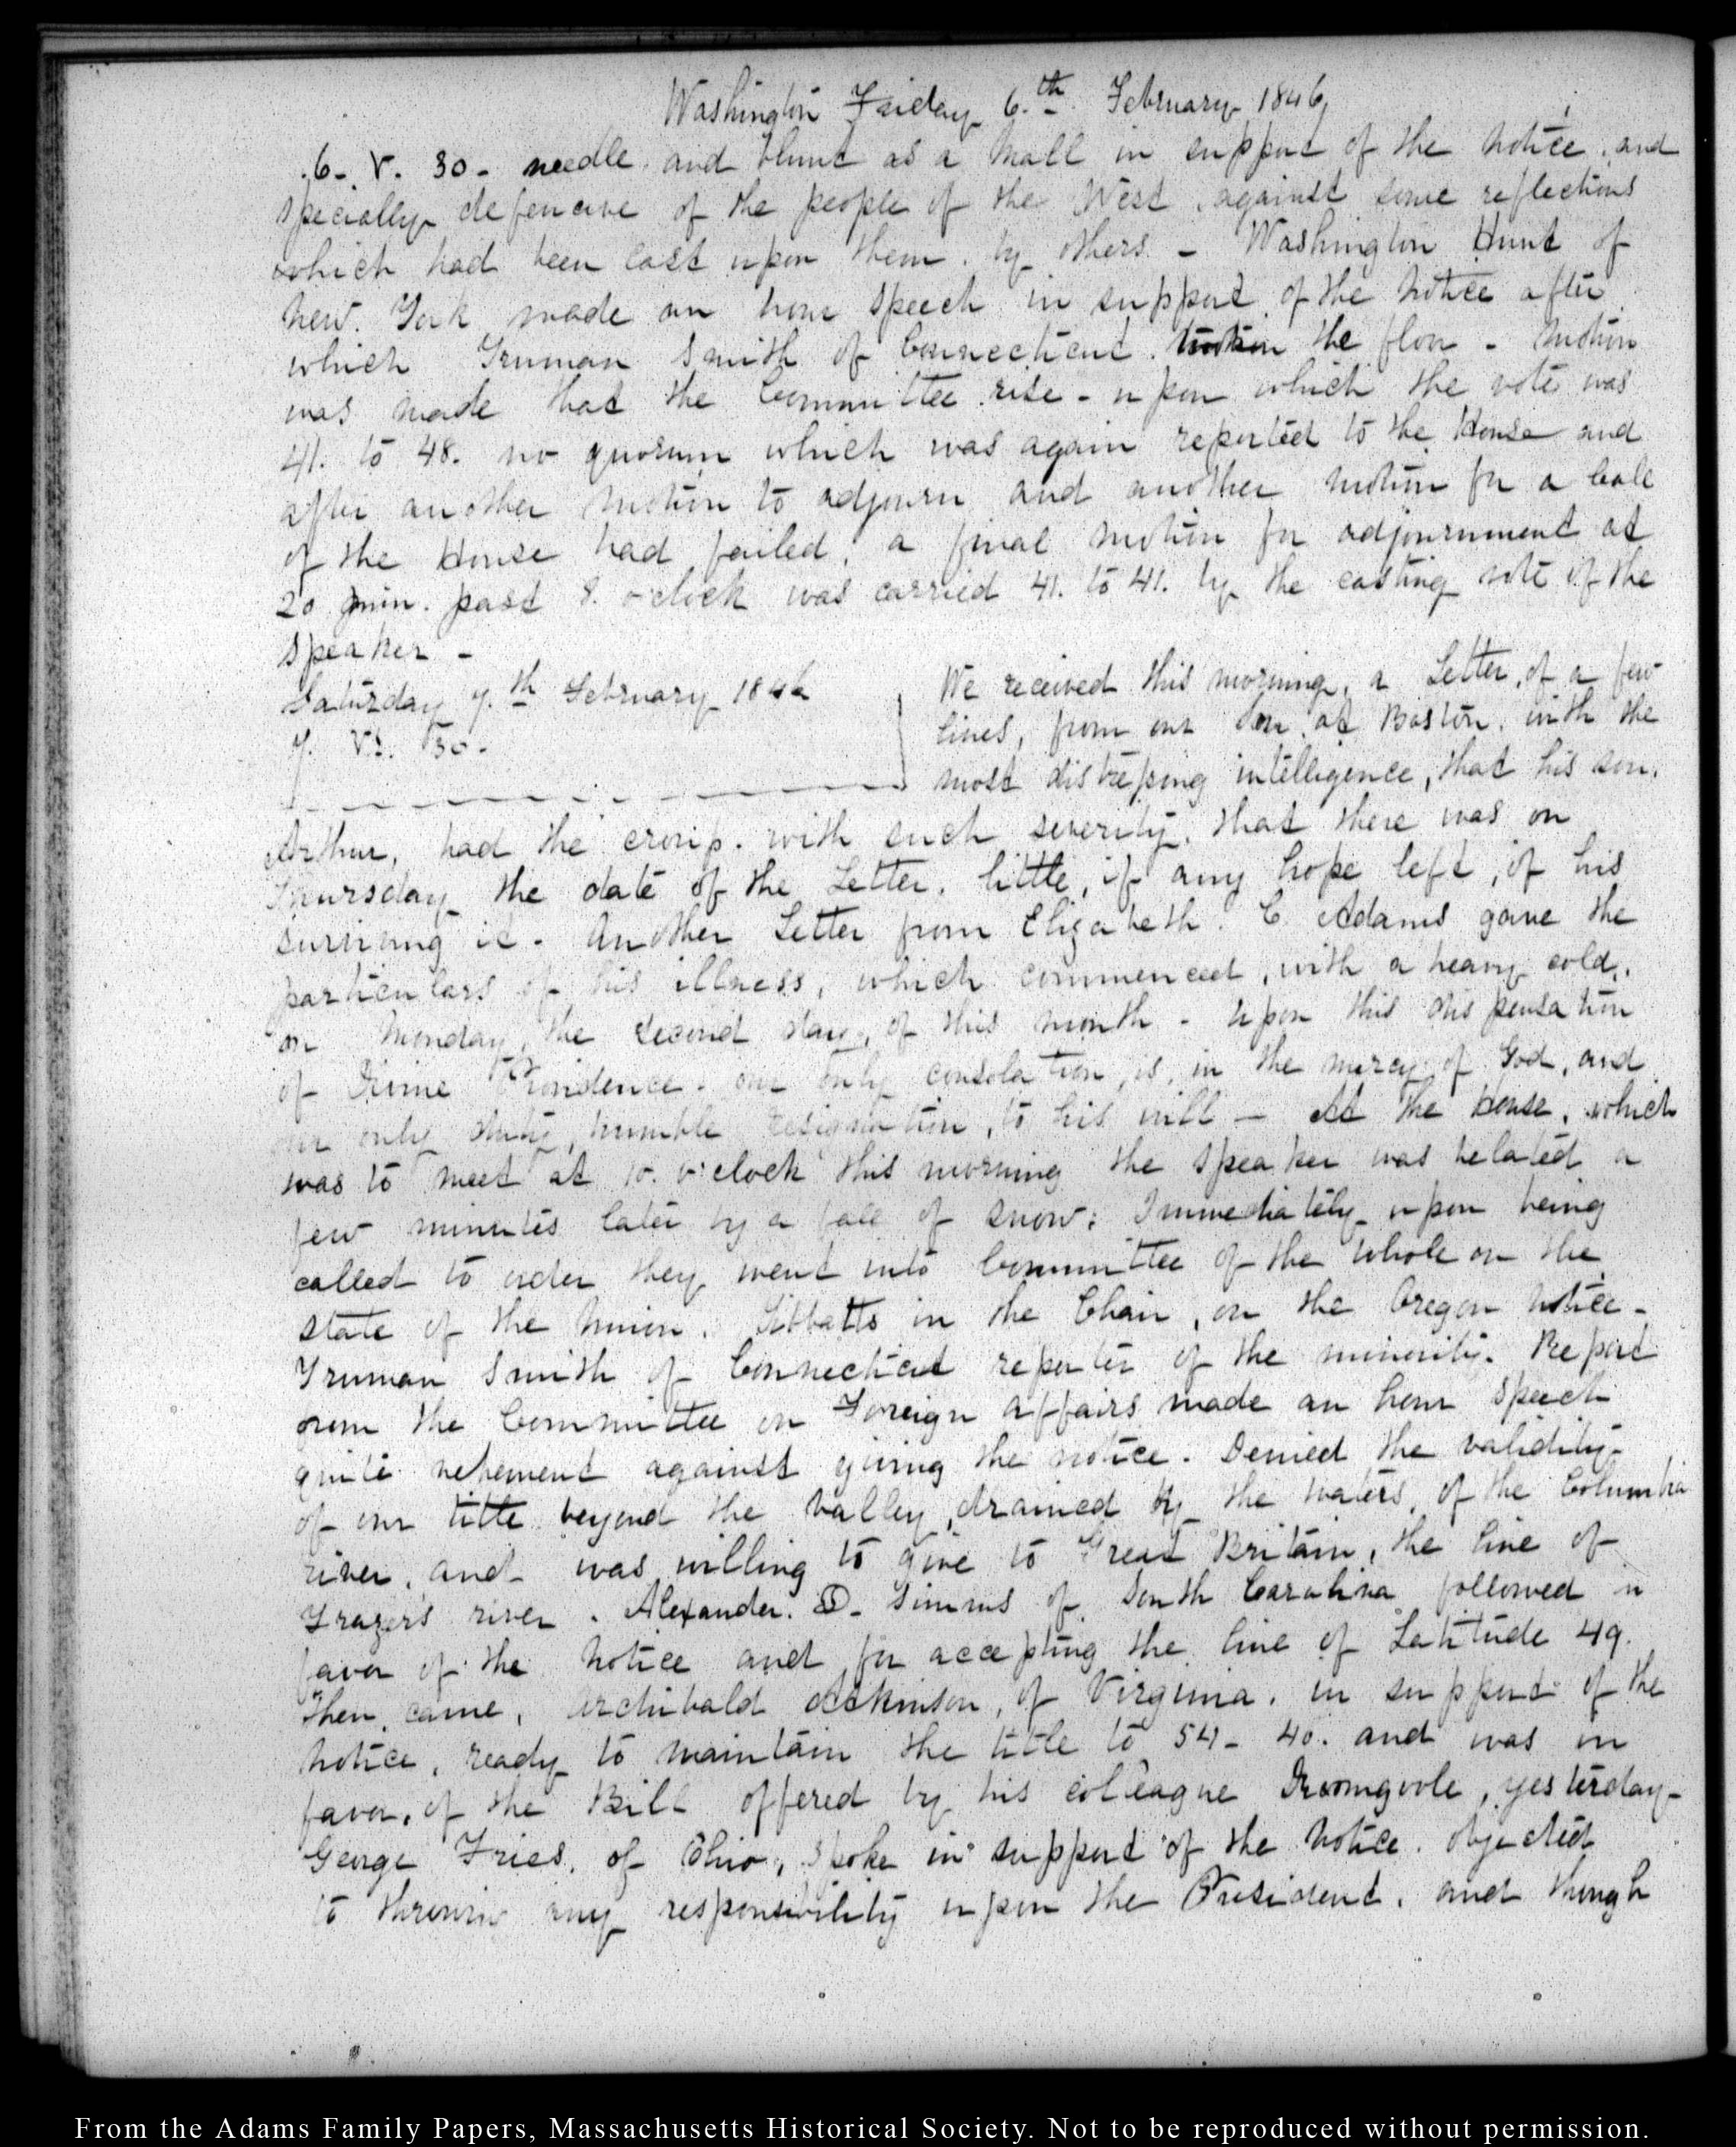 Washington Friday 6.th February 1846
6. V. 30. needle and blunt as a Mall in support of the Notice, and
specially defensive of the people of the West, against some reflections
which had been cast upon them, by others. – Washington Hunt of
New York made an hour speech in support of the Notice after
which Truman Smith of Connecticut the floor – Motion
was made that the Committee rise – upon which the vote was
41. to 48. no quorum which was again reported to the House and
after another Motion to adjourn and another motion for a Call
of the House had failed, a final motion for adjournment at
20 min. past 8. o'clock was carried 41. to 41. by the casting vote of the
Speaker –
Saturday 7.th February 1846
7. V. 30.
We received this morning, a Letter, of a few
lines, from our Son at Boston, with the
most distressing intelligence, that his son,
Arthur, had the croup, with such severity, that there was on
Thursday the date of the Letter, little, if any hope left, of his
surviving it. Another Letter from Elizabeth. C Adams gave the
particulars of his illness, which commenced, with a heavy cold,
on Monday, the second day, of this month – Upon this dispensation
of Divine Providence, our only consolation, is, in the mercy of God, and
our only duty, humble resignation, to his will – At the House, which
was to meet at 10. o'clock this morning the Speaker was belated a
few minutes later by a fall of snow; Immediately upon being
called to order they went into Committee of the whole on the
state of the Union, Tibbatts in the Chair, on the Oregon Notice –
Truman Smith of Connecticut reporter of the minority Report
from the Committee on Foreign Affairs made an hour Speech
quite vehement against giving the notice. Denied the validity
of our title beyond the Valley, drained by the waters, of the Columbia
river, and was willing to give to Great Britain, the line of
Frazer's river. Alexander. D. Simms of South Carolina followed in
favor of the Notice and for accepting the line of Latitude 49.
Then, came, Archibald Atkinson, of Virginia, in support of the
Notice, ready to maintain the title to 54– 40. and was in
favor, of the Bill offered by his colleague Dromgoole, yesterday –
George Fries, of Ohio, spoke in support of the Notice, objected
to throwing any responsibility upon the President, and though
From the Adams Family Papers, Massachusetts Historical Society. Not to be reproduced without permission.